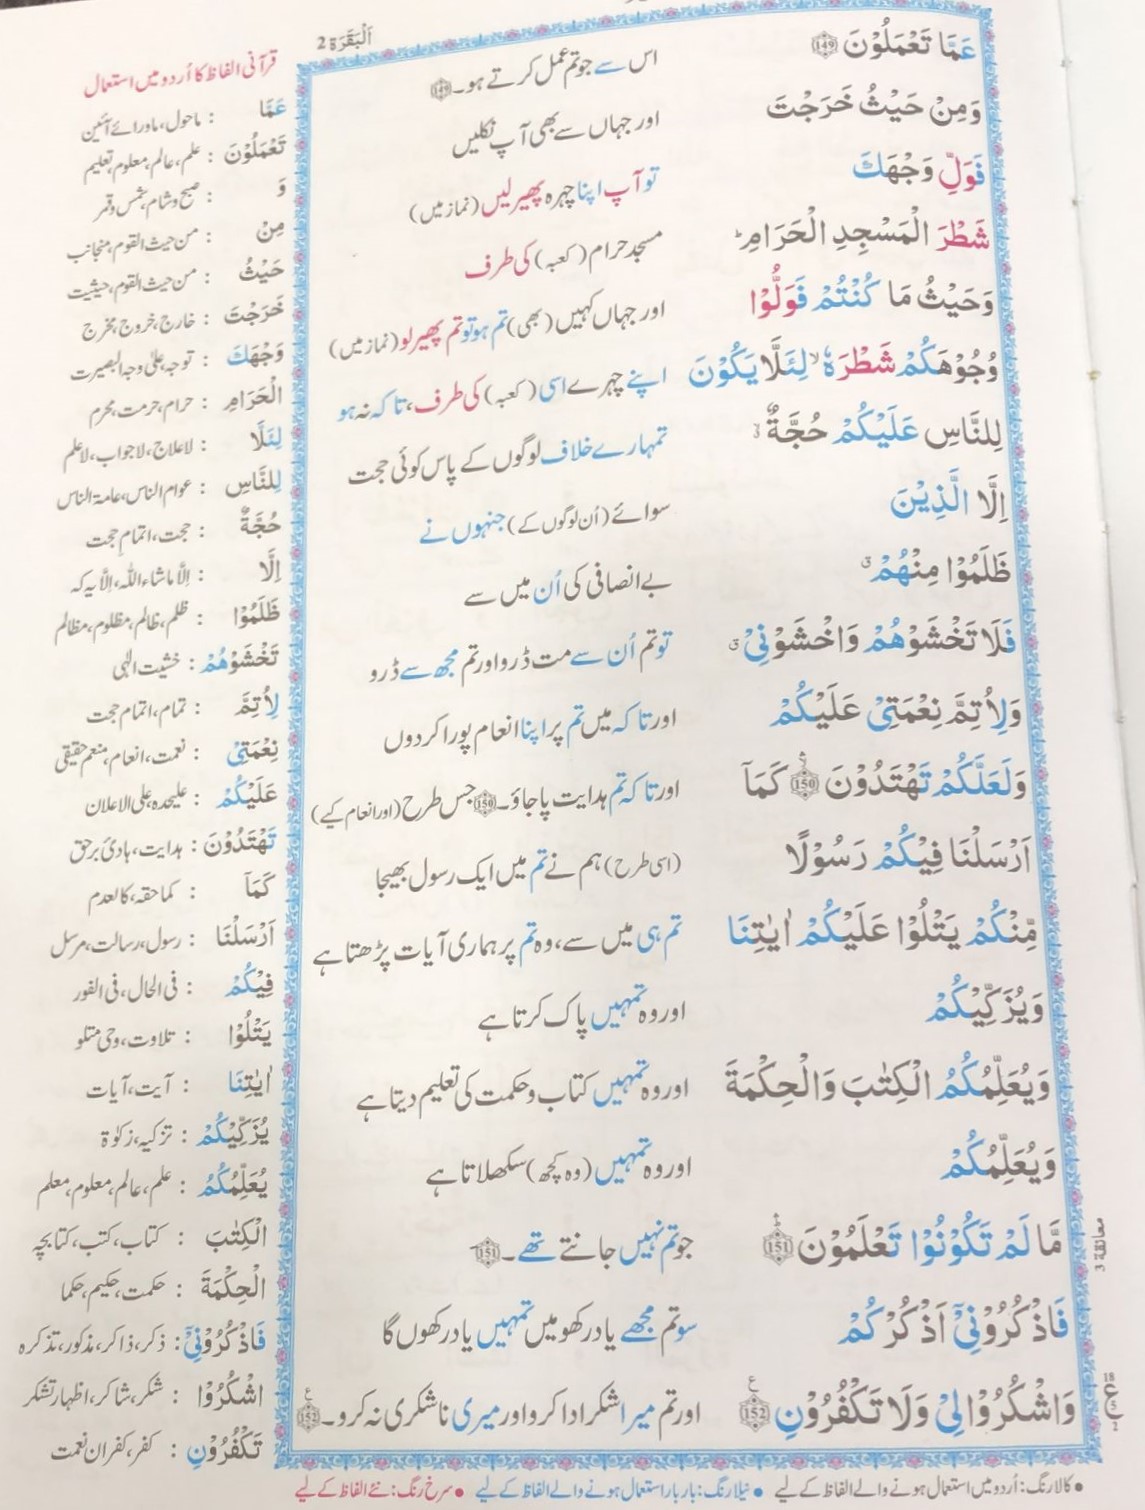 اَلْبَقَرَة 2
عَمَّا تَعْمَلُوْنَ 149
اس سے جو تم عمل کرتے ہو۔ 149
وَمِنْ حَيْثُ خَرَجْتَ
اور جہاں سے بھی آپ نکلیں
فَوَلِّ وَجْهَكَ
تو آپ اپنا چہرہ پھیر لیں (نماز میں)
شَطْرَ الْمَسْجِدِ الْحَرَامِ ؕ
مسجد حرام (کعبہ) کی طرف
وَحَيْثُ مَا كُنْتُمْ فَوَلُّوْا
اور جہاں کہیں (بھی) تم ہو تو تم پھیر لو (نماز میں)
وُجُوْهَكُمْ شَطْرَهٗ ۙ لِئَلَّا يَكُوْنَ
اپنے چہرے اسی (کعبہ) کی طرف، تا کہ نہ ہو
لِلنَّاسِ عَلَيْكُمْ حُجَّةٌ ۗ
تمہارے خلاف لوگوں کے پاس کوئی حجت
اِلَّا الَّذِيْنَ
سوائے (اُن لوگوں کے) جنہوں نے
ظَلَمُوْا مِنْهُمْ ۗ
بے انصافی کی اُن میں سے
فَلَا تَخْشَوْهُمْ وَاخْشَوْنِيْ ۗ
تو تم اُن سے مت ڈرو اور تم مجھ سے ڈرو
وَلِاُتِمَّ نِعْمَتِيْ عَلَيْكُمْ
اور تا کہ میں تم پر اپنا انعام پورا کر دوں
وَلَعَلَّكُمْ تَهْتَدُوْنَ 150 كَمَآ
اور تا کہ تم ہدایت پا جاؤ۔ 150 جس طرح (اور انعام کیے)
اَرْسَلْنَا فِيْكُمْ رَسُوْلًا
(اسی طرح) ہم نے تم میں ایک رسول بھیجا
مِّنْكُمْ يَتْلُوْا عَلَيْكُمْ اٰيٰتِنَا
تم ہی میں سے، وہ تم پر ہماری آیات پڑھتا ہے
وَيُزَكِّيْكُمْ
اور وہ تمہیں پاک کرتا ہے
وَيُعَلِّمُكُمُ الْكِتٰبَ وَالْحِكْمَةَ
اور وہ تمہیں کتاب و حکمت کی تعلیم دیتا ہے
وَيُعَلِّمُكُمْ
اور وہ تمہیں (وہ کچھ) سکھلاتا ہے
مَّا لَمْ تَكُوْنُوْا تَعْلَمُوْنَ 151
جو تم نہیں جانتے تھے۔ 151
فَاذْكُرُوْنِيْٓ اَذْكُرْكُمْ
سو تم مجھے یاد رکھو میں تمہیں یاد رکھوں گا
وَاشْكُرُوْا لِيْ وَلَا تَكْفُرُوْنِ 152
اور تم میرا شکر ادا کرو اور میری ناشکری نہ کرو۔ 152
معانقة 3
ع
قرآنی الفاظ کا اُردو میں استعمال
عَمَّا : ماحول، ماورائے آئین
تَعْمَلُوْنَ : علم، عالم، معلوم، تعلیم
وَ : صبح و شام، شمس و قمر
مِنْ : من حیث القوم، منجانب
حَيْثُ : من حیث القوم، حیثیت
خَرَجْتَ : خارج، خروج، مخرج
وَجْهَكَ : توجہ، علیٰ وجہ البصیرت
الْحَرَامِ : حرام، حرمت، محرم
لِئَلَّا : لاعلاج، لاجواب، لاعلم
لِلنَّاسِ : عوام الناس، عامۃ الناس
حُجَّةٌ : حجت، اتمام حجت
اِلَّا : اِلَّا ماشاء اللہ، اِلَّا یہ کہ
ظَلَمُوْا : ظلم، ظالم، مظلوم، مظالم
تَخْشَوْهُمْ : خشیت الٰہی
لِاُتِمَّ : تمام، اتمام حجت
نِعْمَتِيْ : نعمت، انعام، منعم حقیقی
عَلَيْكُمْ : علیحدہ، علی الاعلان
تَهْتَدُوْنَ : ہدایت، ہادیٔ برحق
كَمَآ : کما حقہ، کالعدم
اَرْسَلْنَا : رسول، رسالت، مرسل
فِيْكُمْ : فی الحال، فی الفور
يَتْلُوْا : تلاوت، وحی متلو
اٰيٰتِنَا : آیت، آیات
يُزَكِّيْكُمْ : تزکیہ، زکوٰۃ
يُعَلِّمُكُمُ : علم، عالم، معلوم، معلم
الْكِتٰبَ : کتاب، کتب، کتابچہ
الْحِكْمَةَ : حکمت، حکیم، حکما
فَاذْكُرُوْنِيْٓ : ذکر، ذاکر، مذکور، تذکرہ
اشْكُرُوْا : شکر، شاکر، اظہار تشکر
تَكْفُرُوْنِ : کفر، کفران نعمت
• کالا رنگ: اُردو میں استعمال ہونے والے الفاظ کے لیے • نیلا رنگ: بار بار استعمال ہونے والے الفاظ کے لیے • سرخ رنگ: نئے الفاظ کے لیے